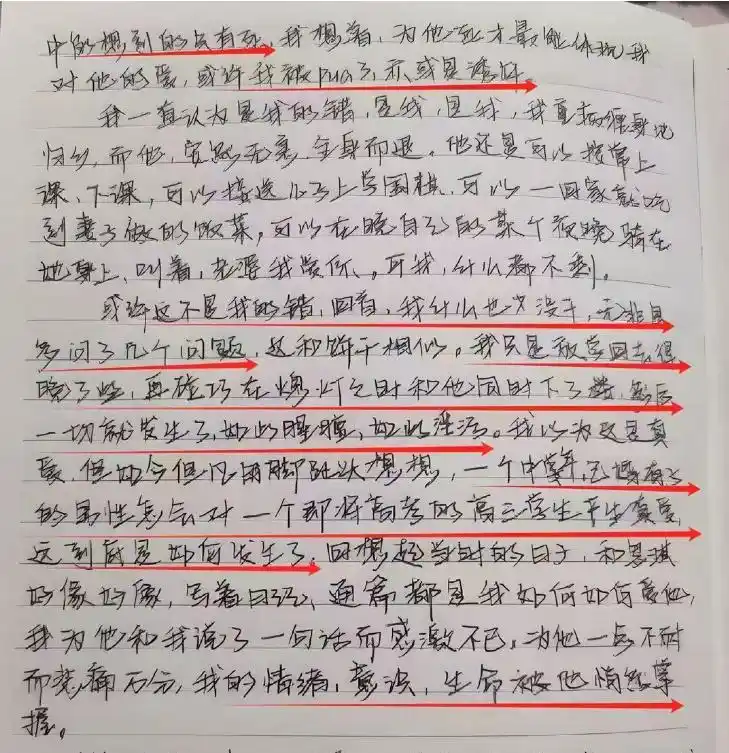 中的想到的只有死。我想着，为他死才最能体现我
对他的爱，或许我被pua了，亦或是滤镜。
我一直认为是我的错，是我，是我，我重构缠身地
归乡，而他，安然无恙，全身而退。他还是可以按常上
课、下课，可以接送儿子上学围棋，可以一回家就吃
到妻子做的饭菜，可以在晚自习的某个夜晚骑在
她身上，叫着，老婆我爱你、，可我，什么都不剩。
或许这不是我的错，回首，我什么也没干，无非是
多问了几个问题，这和饼干相似。我只是放学回去得
晚了些，再碰巧在熄灯之时和他同时下了楼，然后
一切就发生了，如此腥膻，如此淫污。我以为这是真
爱，但如今但凡用脚趾头想想，一个中年，已婚有子
的男性怎会对一个即将高考的高三学生平生真爱，
这到底是如何发生了，回想起当时的日子，和思琪
好像好像，写着日记，通篇都是我如何如何爱他，
我为他和我说了一句话而感激不已，为他一点不耐
而悲痛万分，我的情绪，意识，生命被他悄然掌
握。